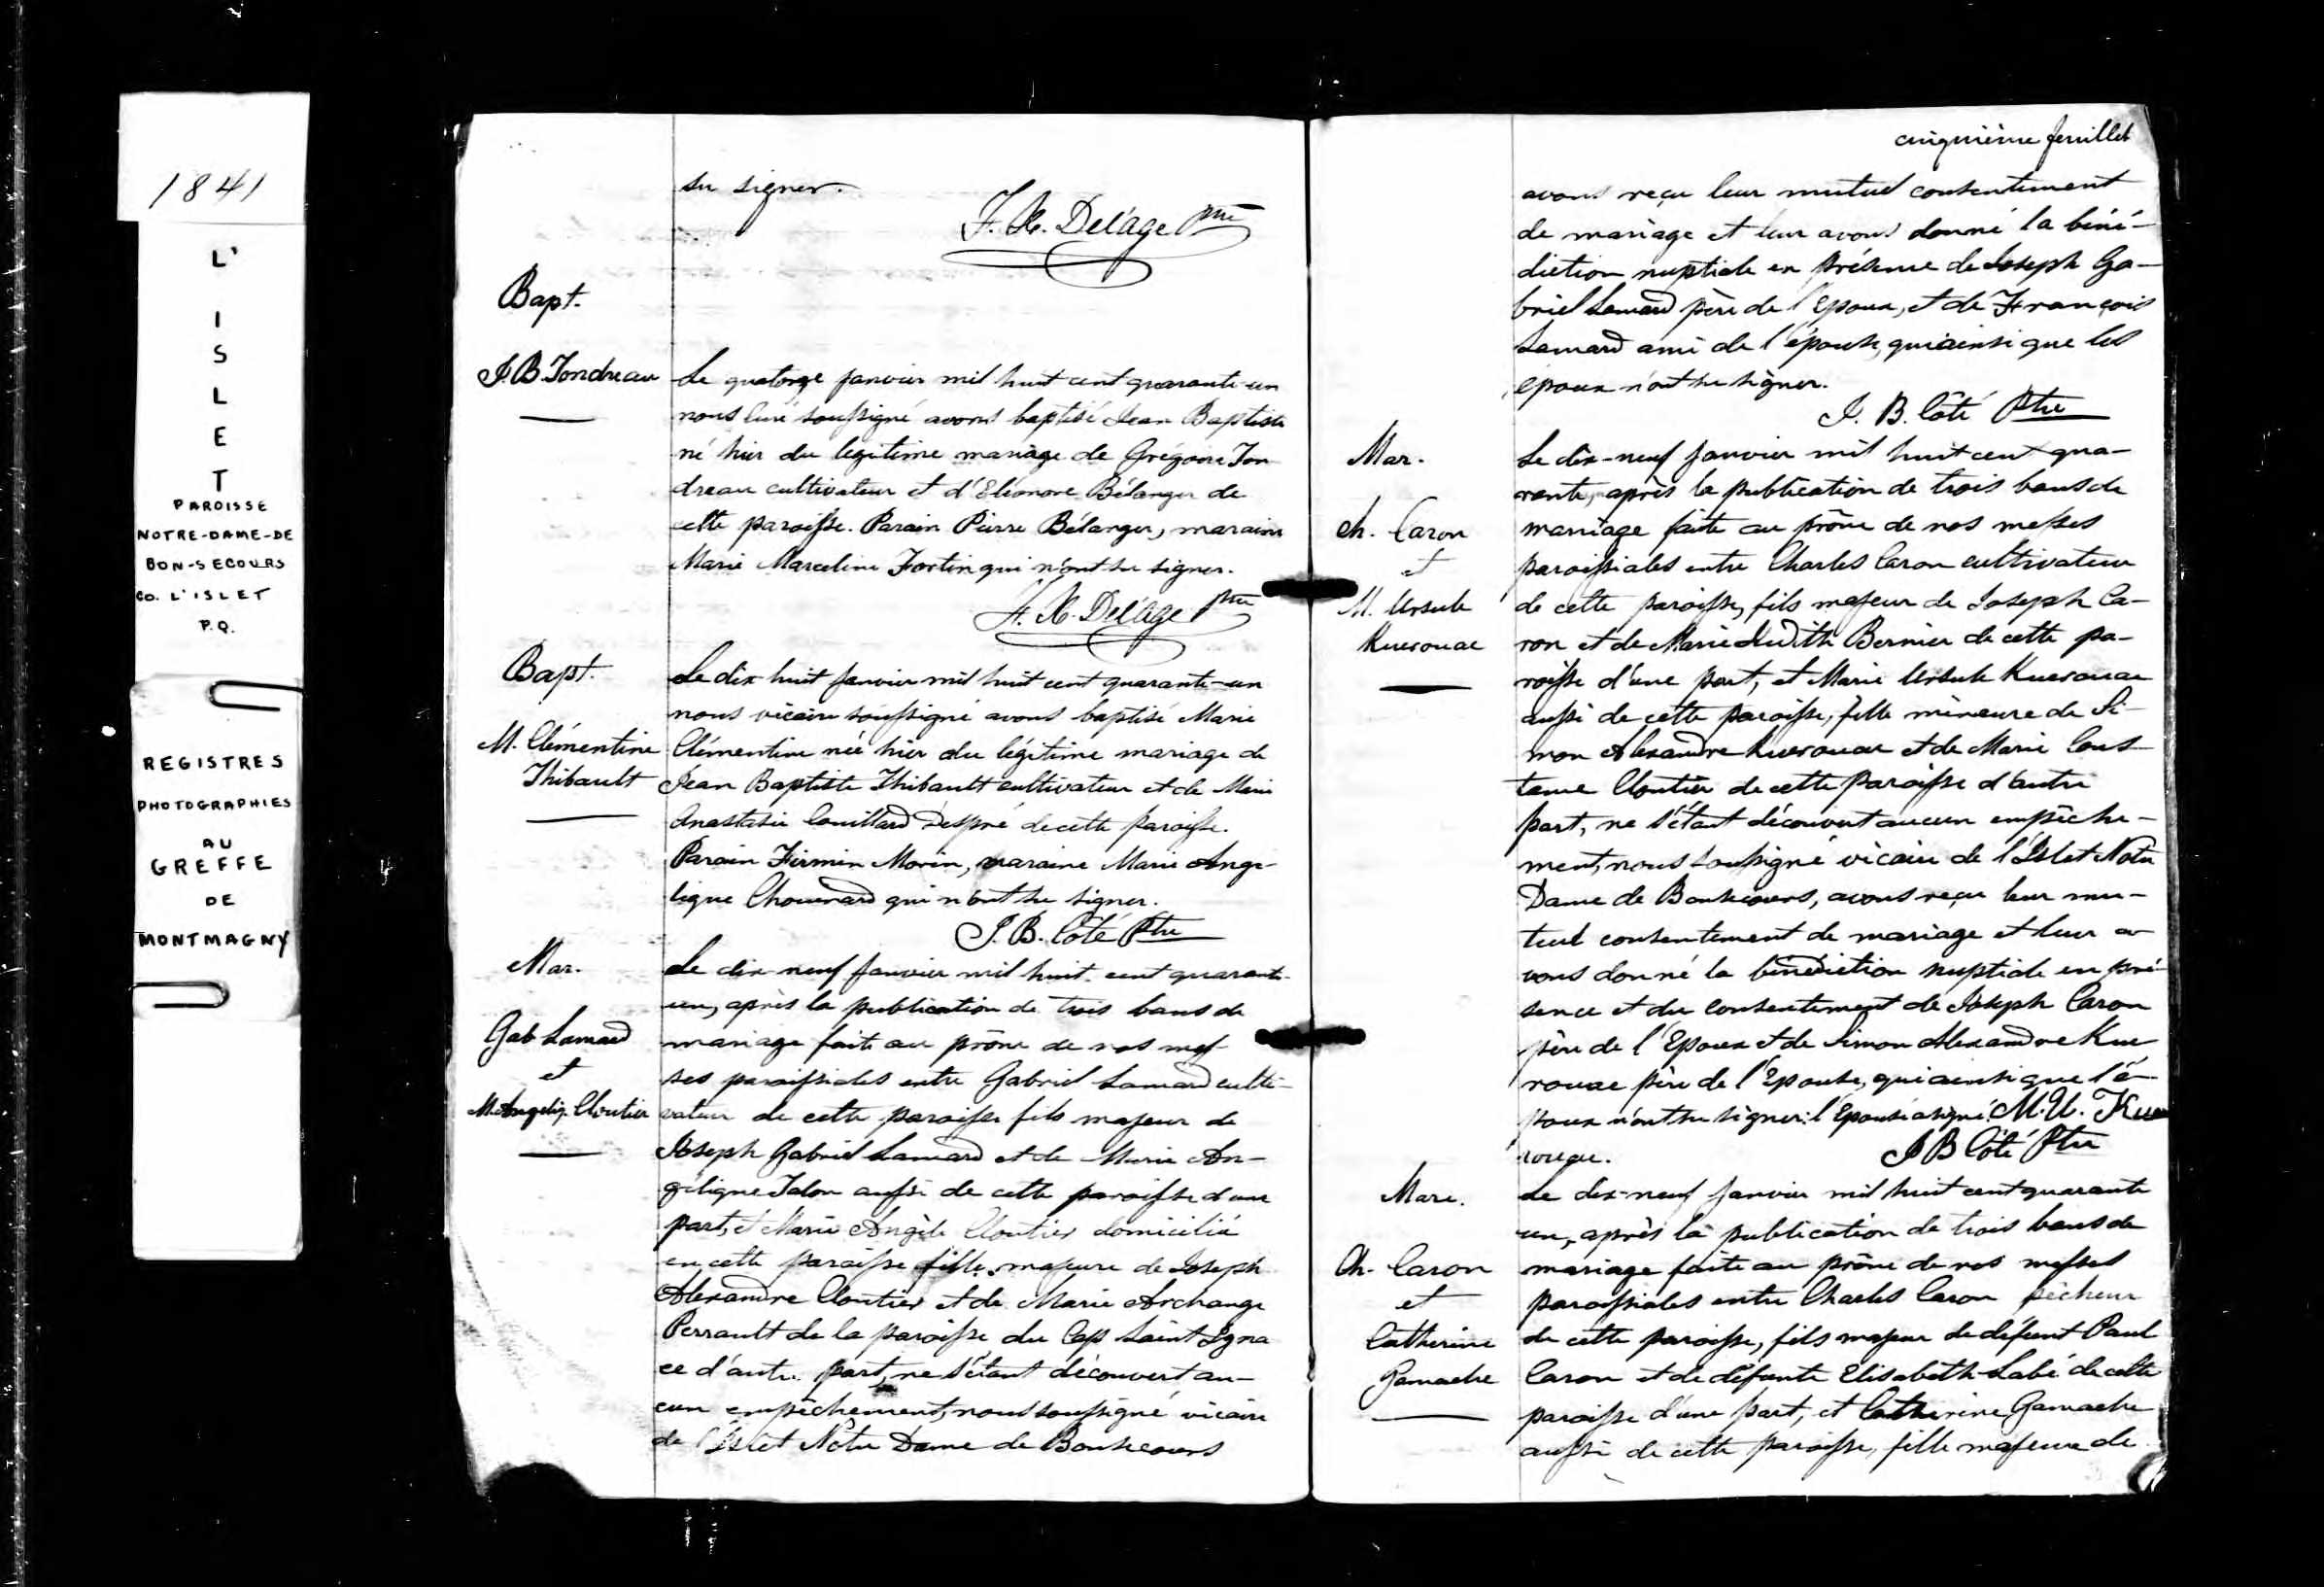 1841
L'
I
S
L
E
T
PAROISSE
NOTRE-DAME-DE
BON-SECOURS
CO. L'ISLET
P.Q.
REGISTRES
PHOTOGRAPHIES
AU
GREFFE
DE
MONTMAGNY
su signer.
F. X. Delâge Ptre
Bapt.
J. B. Tondreau
Le quatorze janvier mil huit cent quarante-un
nous curé soussigné avons baptisé Jean Baptiste
né hier du legitime mariage de Grégoire Ton
dreau cultivateur et d'Eléonore Bélanger de
cette paroisse. Parain Pierre Bélanger, maraine
Marie Marceline Fortin qui n'ont su signer.
F. X. Delâge Ptre
Bapt.
M. Clémentine
Thibault
Le dix huit janvier mil huit cent quarante-un
nous vicaire soussigné avons baptisé Marie
Clémentine née hier du légitime mariage de
Jean Baptiste Thibault cultivateur et de Marie
Anastasie Couillard Despré de cette paroisse.
Parain Firmin Morin, maraine Marie Angé-
lique Chouinard qui n'ont su signer.
J. B. Côté Ptre
Mar.
Gab Lamard
et
M. Angéliq. Cloutier
Le dix neuf janvier mil huit cent quarante-
un, après la publication de trois bans de
mariage faite au prône de nos mes-
ses paroissiales entre Gabriel Lamard culti-
vateur de cette paroisse fils majeur de
Joseph Gabriel Lamard et de Marie An-
gélique Talon aussi de cette paroisse d'une
part, et Marie Angèle Cloutier domiciliée
en cette paroisse fille majeure de Joseph
Alexandre Cloutier et de Marie Archange
Perrault de la paroisse du Cap Saint Igna
ce d'autre part, ne s'étant découvert au-
cun empêchement, nous soussigné vicaire
de l'Islet Notre Dame de Bonsecours
cinquième feuillet
avons reçu leur mutuel consentement
de mariage et leur avons donné la béné-
diction nuptiale en présence de Joseph Ga-
briel Lamard père de l'Epoux, et de François
Lamard ami de l'épouse, qui ainsi que les
époux n'ont su signer.
J. B. Côté Ptre
Mar.
Ch. Caron
et
M. Ursule
Kuerouac
Le dix-neuf janvier mil huit cent qua-
rante, après la publication de trois bans de
mariage faite au prône de nos messes
paroissiales entre Charles Caron cultivateur
de cette paroisse, fils majeur de Joseph Ca-
ron et de Marie Judith Bernier de cette pa-
roisse d'une part, et Marie Ursule Kuerouac
aussi de cette paroisse, fille mineure de Si-
mon Alexandre Kuerouac et de Marie Cons-
tance Cloutier de cette paroisse d'autre
part, ne s'étant découvert aucun empêche-
ment, nous soussigné vicaire de l'Islet Notre
Dame de Bonsecours, avons reçu leur mu-
tuel consentement de mariage et leur a-
vons donné la bénédiction nuptiale en pré-
sence et du consentement de Joseph Caron
père de l'Epoux et de Simon Alexandre Kue
rouac père de l'Epouse, qui ainsi que l'é-
poux n'ont su signer: l'Epouse a signé. M. U. Kue
rouac.
J B Côté Ptre
Mare.
Ch. Caron
et
Catherine
Gamache
Le dix-neuf janvier mil huit cent quarante
un, après la publication de trois bans de
mariage faite au prône de nos messes
paroissiales entre Charles Caron pêcheur
de cette paroisse, fils majeur de défunt Paul
Caron et de défunte Elisabeth Labé de cette
paroisse d'une part, et Catherine Gamache
aussi de cette paroisse, fille majeure de